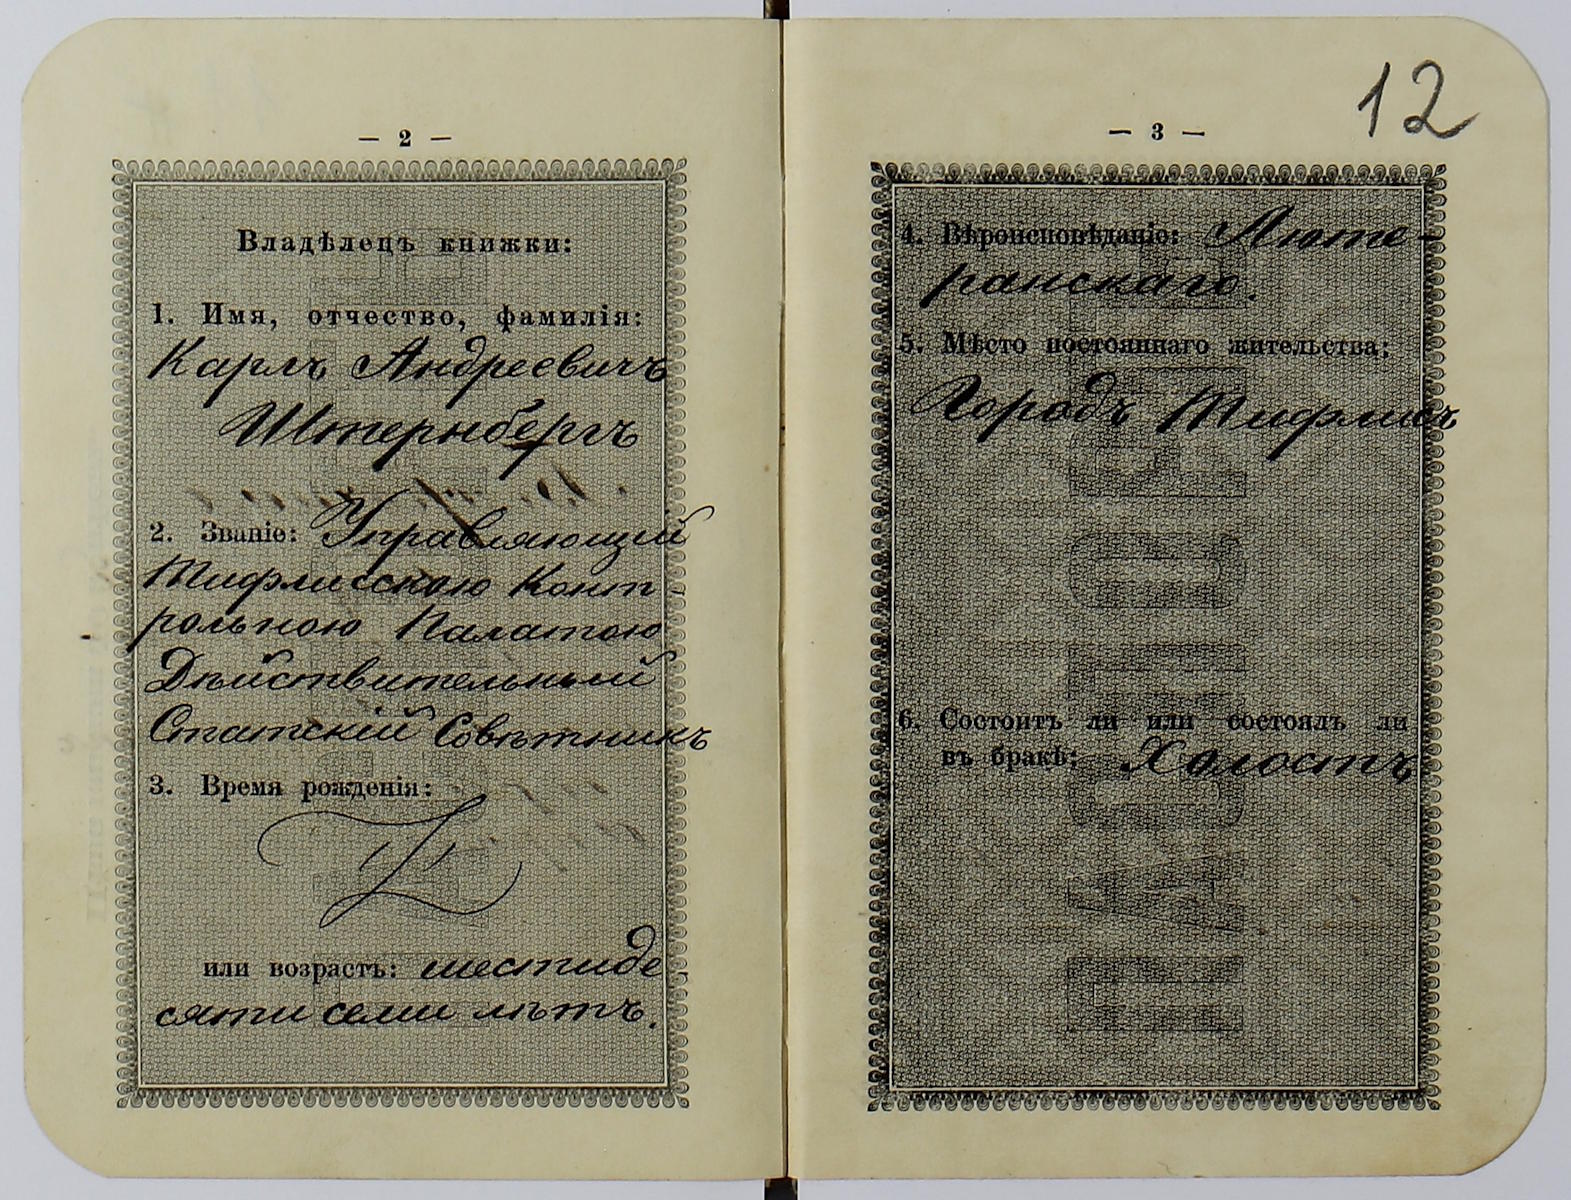 — 2 —
Владѣлецъ книжки:
1. Имя, отчество, фамилія:
Карлъ Андреевичъ
Штернбергъ
2. Званіе: Управляющій
Тифлисскою Конт-
рольною Палатою
Дѣйствительный
Статскій Совѣтникъ
3. Время рожденія:
или возрастъ: шестиде
сяти семи лѣтъ.
12
— 3 —
4. Вѣроисповѣданіе: Люте-
ранскаго.
5. Мѣсто постояннаго жительства:
Городъ Тифлисъ
6. Состоитъ ли или состоялъ ли
въ бракѣ: Холостъ
ПАСПОРТ